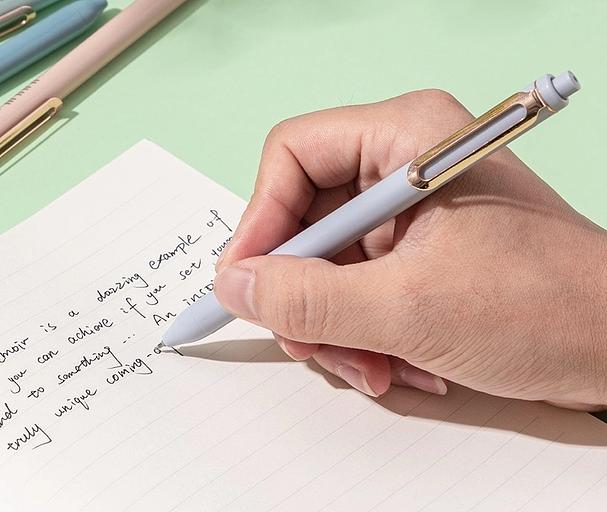 is a dazzling example of
you can achieve if you set your
to something... An
truly unique coming-o